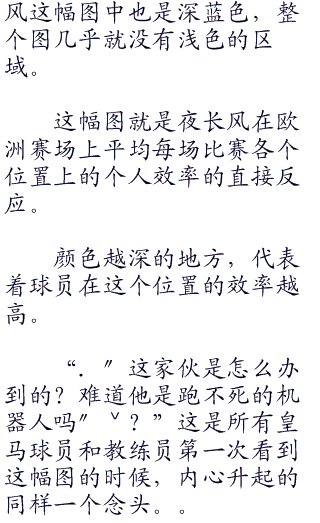 风这幅图中也是深蓝色，整
个图几乎就没有浅色的区
域。
这幅图就是夜长风在欧
洲赛场上平均每场比赛各个
位置上的个人效率的直接反
应。
颜色越深的地方，代表
着球员在这个位置的效率越
高。
“．〞这家伙是怎么办
到的？难道他是跑不死的机
器人吗〞ˇ？”这是所有皇
马球员和教练员第一次看到
这幅图的时候，内心升起的
同样一个念头。。